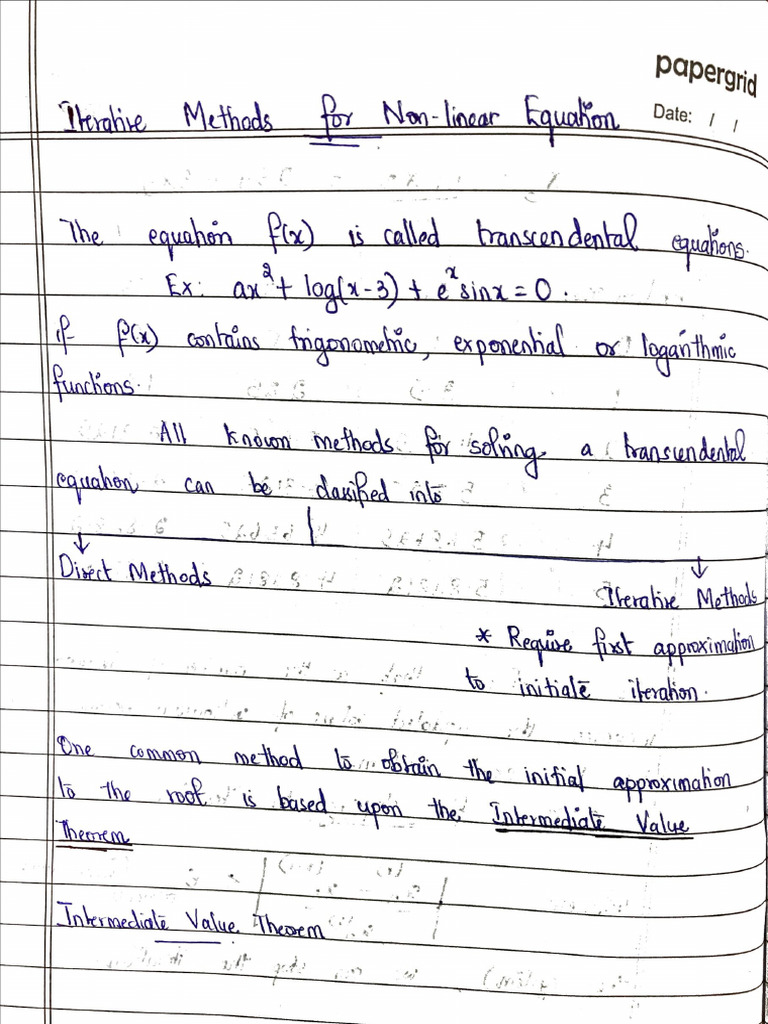 papergrid
Date: / /
Iterative Methods for Non-linear Equation
The equation f(x) is called transcendental equations.
Ex: ax² + log(x-3) + eˣ sinx = 0.
if f(x) contains trigonometric, exponential or logarithmic
functions.
All known methods for solving a transcendental
equation can be classified into
Direct Methods
Iterative Methods
* Require first approximation
to initiate iteration.
One common method to obtain the initial approximation
to the root is based upon the Intermediate Value
Theorem
Intermediate Value Theorem